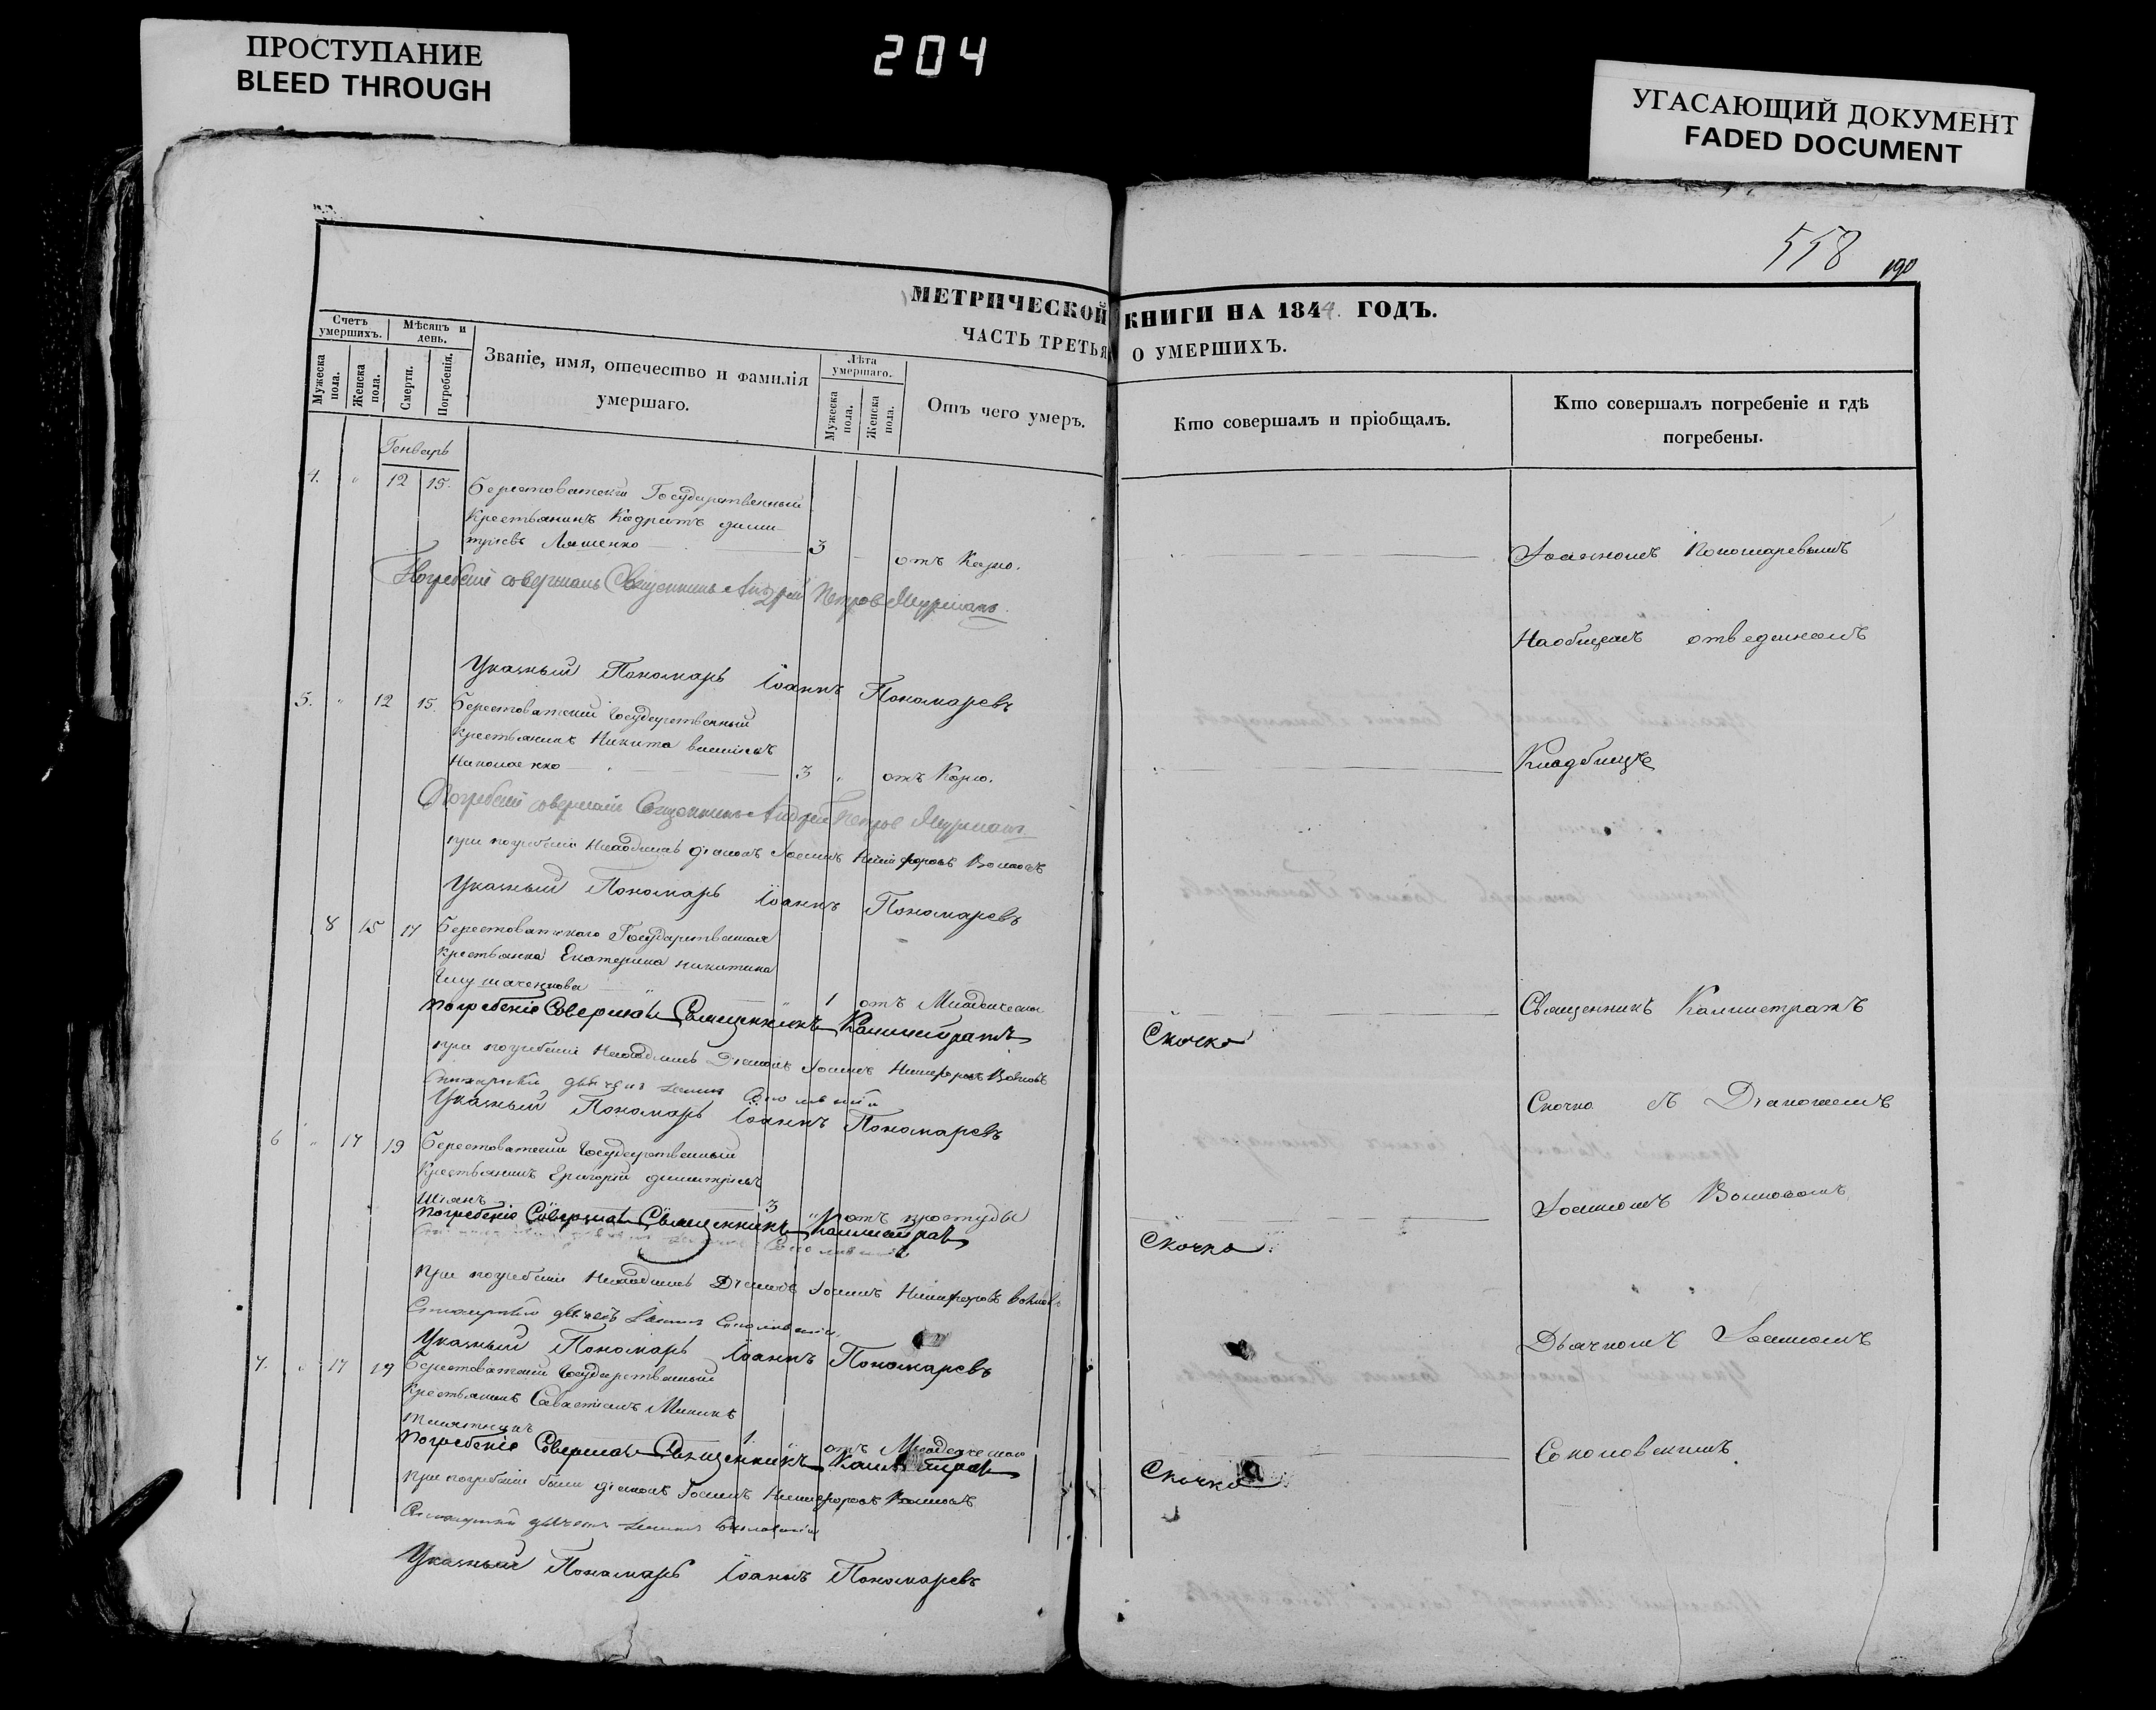 ПРОСТУПАНИЕ
BLEED THROUGH
204
УГАСАЮЩИЙ ДОКУМЕНТ
FADED DOCUMENT
558 190
МЕТРИЧЕСКОЙ КНИГИ НА 1844. ГОДЪ.
ЧАСТЬ ТРЕТЬЯ О УМЕРШИХЪ.
Счетъ умершихъ.
Мужеска пола.
Женска пола.
Мѣсяцъ и день.
Смерти.
Погребенія.
Званіе, имя, отечество и фамилія
умершаго.
Лѣта умершаго.
Мужеска пола.
Женска пола.
Отъ чего умеръ.
Кто совершалъ и пріобщалъ.
Кто совершалъ погребеніе и гдѣ
погребены.
Генваръ
4. " 12 15. Берестоватскій Государственный
Крестьянинъ Кодратъ дими-
тріевъ Ляшенко 3 отъ Корю.
Погребеніе совершалъ Священникъ Андрей Петровъ
Указный Пономарь Іоаннъ Пономаревъ
5. " 12 15. Берестоватскій Государственный
Крестьянинъ Никита
Николаенко 3 " отъ Корю.
Погребеніе совершалъ Священникъ Андрей Петровъ
при погребеніи находился діаконъ Іоаннъ Никифоровъ Волковъ
Указный Пономарь Іоаннъ Пономаревъ
8 15 17 Берестоватского Государственная
крестьянка Екатерина никитина
" 1 отъ Младенческой
погребеніе Совершалъ Священникъ Калистратъ Скочко
при погребеніи Находились Діаконъ Іоаннъ Никифоровъ Волковъ
Указный Пономарь Іоаннъ Пономаревъ
6 " 17 19 Берестоватскій Государственный
Крестьянинъ Григорій димитріевъ
3 " отъ простуды
погребеніе Совершалъ Священникъ Калистратъ Скочко
при погребеніи Находились Діаконъ Іоаннъ Никифоровъ Волковъ
Указный Пономарь Іоаннъ Пономаревъ
7. " 17 19 Берестоватскій Государственный
Крестьянинъ Савастіанъ Мининъ
1. " отъ Младенческой
погребеніе Совершалъ Священникъ Калистратъ Скочко
при погребеніи были діаконъ Іоаннъ Никифоровъ Волковъ
Указный Пономарь Іоаннъ Пономаревъ
Іоанномъ Пономаревымъ
Наобщемъ отведеномъ
Кладбищѣ
Священникъ Калистратъ
Скочко съ Діакономъ
Іоанномъ Волковомъ
Дьячкомъ Іоанномъ
Соколовскимъ.